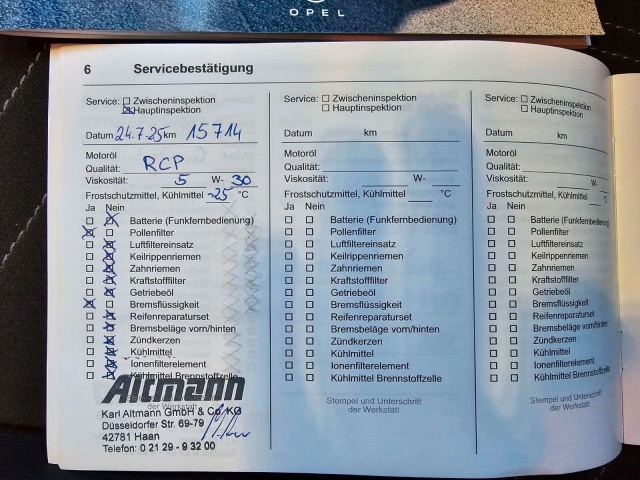 OPEL
6 Servicebestätigung
Service: Zwischeninspektion
Hauptinspektion
Datum 24.7.25 km 15714
Motoröl
Qualität: RCP
Viskosität: 5 W- 30
Frostschutzmittel, Kühlmittel -25 °C
Ja Nein
Batterie (Funkfernbedienung)
Pollenfilter
Luftfiltereinsatz
Keilrippenriemen
Zahnriemen
Kraftstofffilter
Getriebeöl
Bremsflüssigkeit
Reifenreparaturset
Bremsbeläge vorn/hinten
Zündkerzen
Kühlmittel
Ionenfilterelement
Kühlmittel Brennstoffzelle
Altmann
der Werkstatt
Karl Altmann GmbH & Co. KG
Düsseldorfer Str. 69-79
42781 Haan
Telefon: 0 21 29 - 9 32 00
Service: Zwischeninspektion
Hauptinspektion
Datum km
Motoröl
Qualität:
Viskosität: W-
Frostschutzmittel, Kühlmittel °C
Ja Nein
Batterie (Funkfernbedienung)
Pollenfilter
Luftfiltereinsatz
Keilrippenriemen
Zahnriemen
Kraftstofffilter
Getriebeöl
Bremsflüssigkeit
Reifenreparaturset
Bremsbeläge vorn/hinten
Zündkerzen
Kühlmittel
Ionenfilterelement
Kühlmittel Brennstoffzelle
Stempel und Unterschrift
der Werkstatt
Service: Zwischeninspektion
Hauptinspektion
Datum km
Motoröl
Qualität:
Viskosität: W-
Frostschutzmittel, Kühlmittel °C
Ja Nein
Batterie (Funkfernbedienung)
Pollenfilter
Luftfiltereinsatz
Keilrippenriemen
Zahnriemen
Kraftstofffilter
Getriebeöl
Bremsflüssigkeit
Reifenreparaturset
Bremsbeläge vorn/hinten
Zündkerzen
Kühlmittel
Ionenfilterelement
Kühlmittel Brennstoffzelle
Stempel und Unterschrift
der Werkstatt